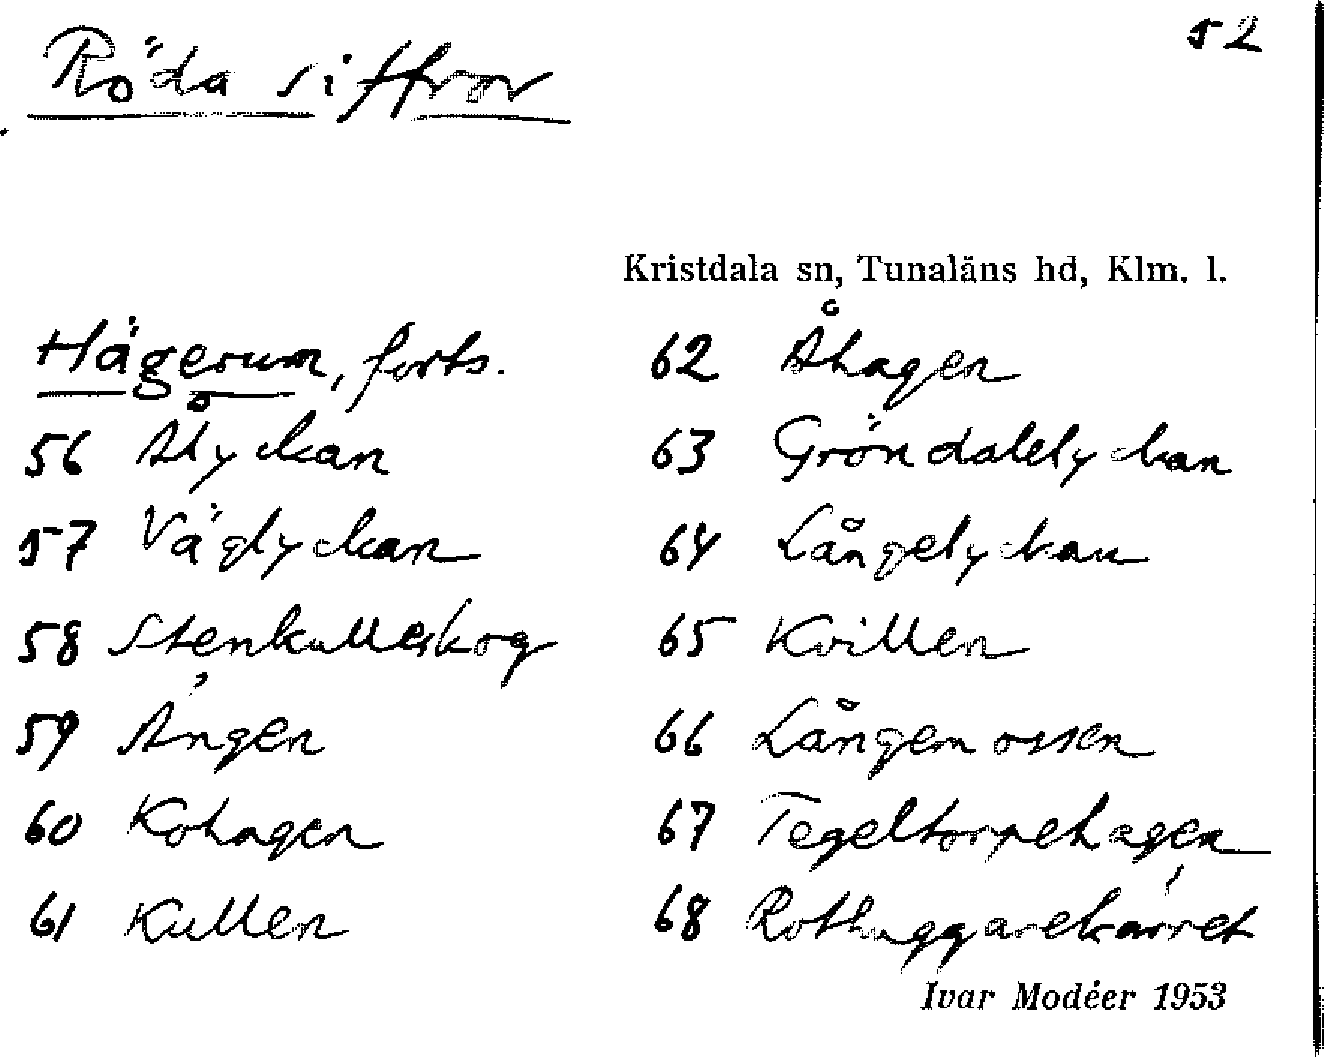 52
Röda siffror
Kristdala sn, Tunaläns hd, Klm. l.
Hägerum, forts.
56 Ålyckan
57 Väglyckan
58 Stenkulleskog
59 Ängen
60 Kohagen
61 Kullen
62 Åhagen
63 Gröndalelyckan
64 Långelyckan
65 Kvillen
66 Långemossen
67 Tegeltorpehagen
68 Rothuggarekärret
Ivar Modéer 1953